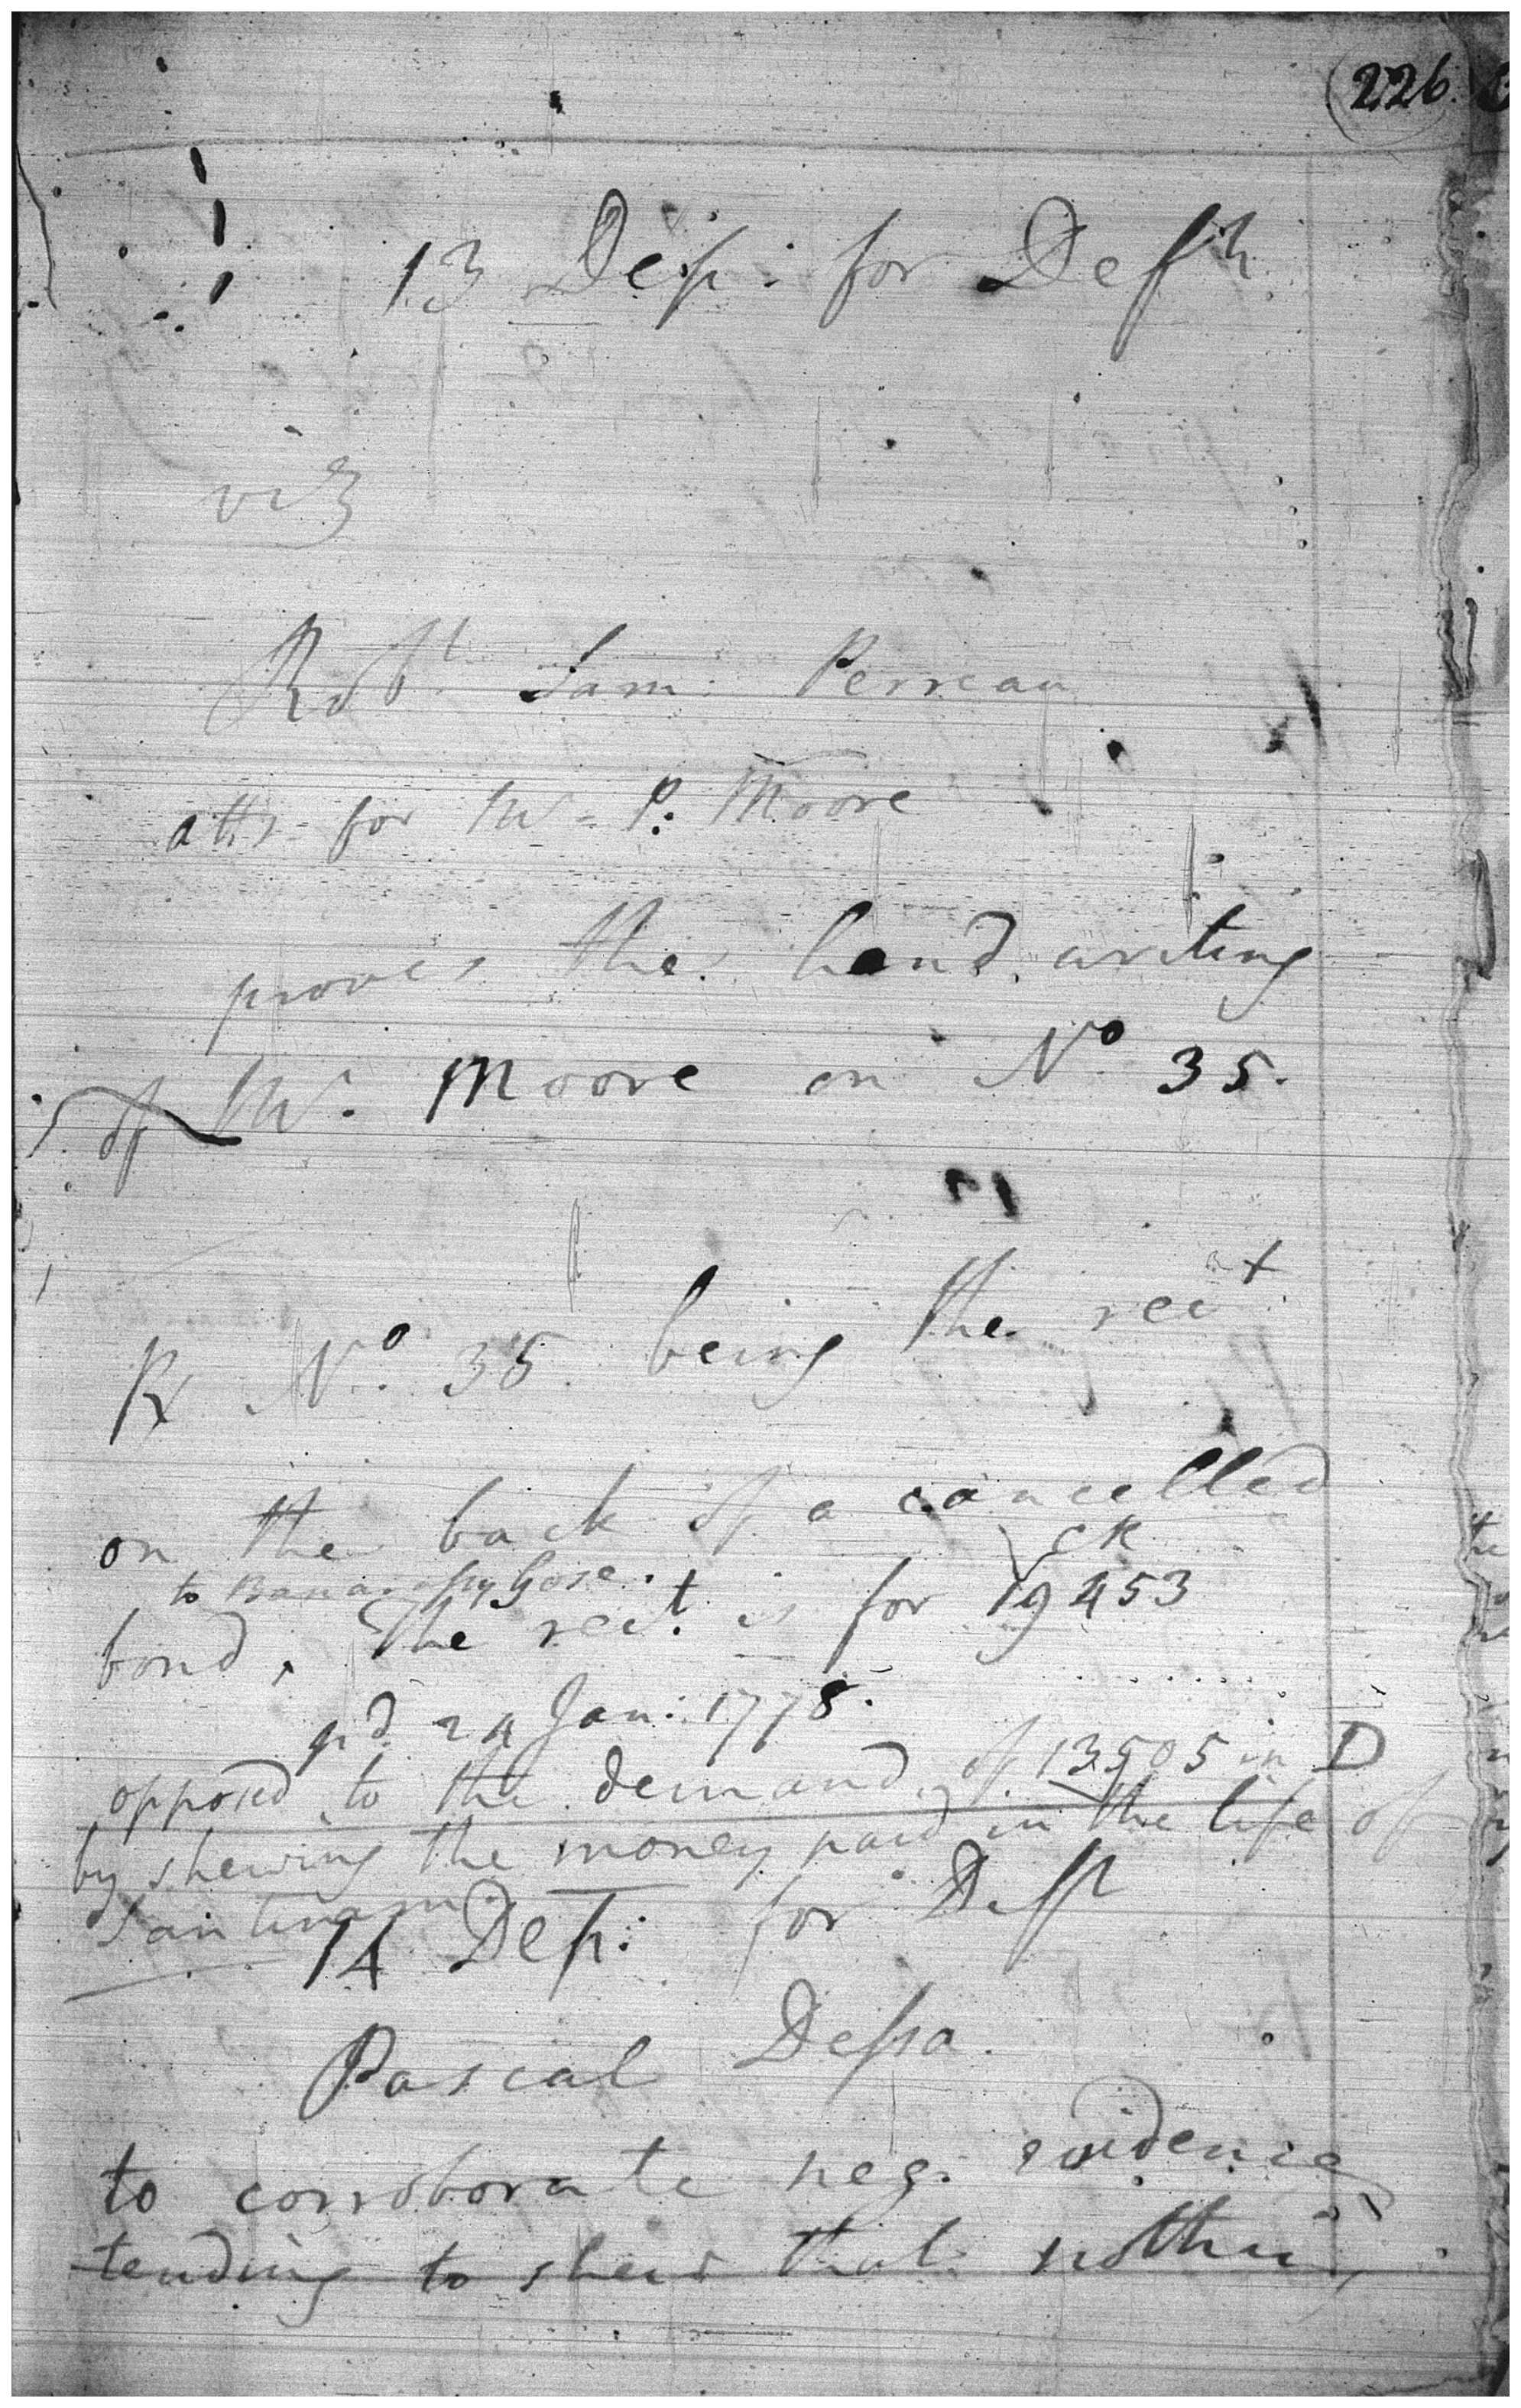 (226)
13 Dep. for Deft
viz
Robt. Sam: Perreau
atty. for Mr. P. Moore
proves the hand writing
of Mr. Moore on No 35.
R No. 35 being the rect
on the back of a cancelled
to Gose. CR
bond, The rect. is for 19453
pd. 24 Jan: 1778.
opposed to the demand of 13505 in D
by shewing the money paid in the life of
Santiram
14 Dep: for Deft
Pascal Dessa.
to corroborate neg. evidence
tending to shew that nothing